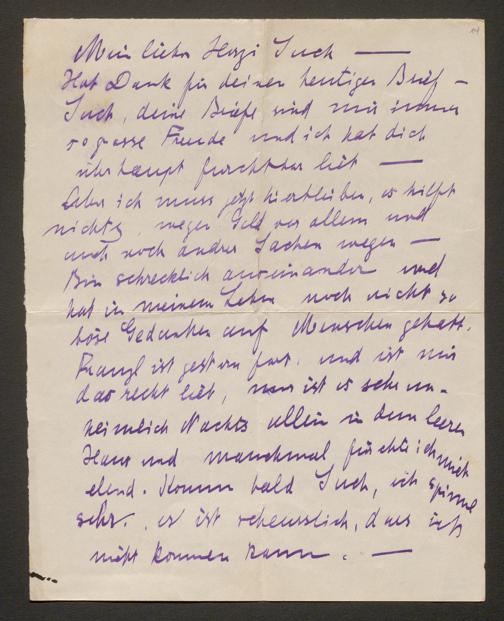 Mein lieber Herzi Such —
Hab Dank für deinen heutigen Brief –
Such, deine Briefe sind mir immer
so grosse Freude und ich hab dich
überhaupt furchtbar lieb —
Aber ich muss jetzt hierbleiben, es hilft
nichts, wegen Geld vor allem und
auch noch andrer Sachen wegen —
Bin schrecklich auseinander und
hab in meinem Leben noch nicht so
böse Gedanken auf Menschen gehabt.
Franzl ist gestern fort, und ist mir
das recht lieb, nur ist es sehr un-
heimlich Nachts allein in dem leeren
Haus und manchmal fürchte ich mich
elend. Komm bald Such, ich spinne
sehr, es ist scheusslich, dass ich
nicht kommen kann. —